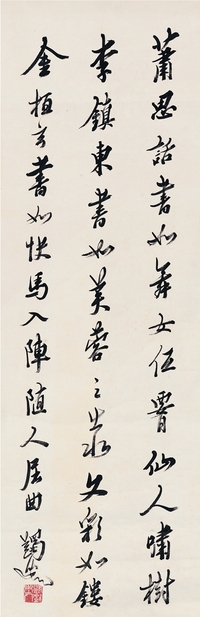 蕭思話書如舞女低腰仙人嘯樹
李鎮東書如芙蓉之出水文彩如鏤
金桓玄書如快馬入陣隨人屈曲